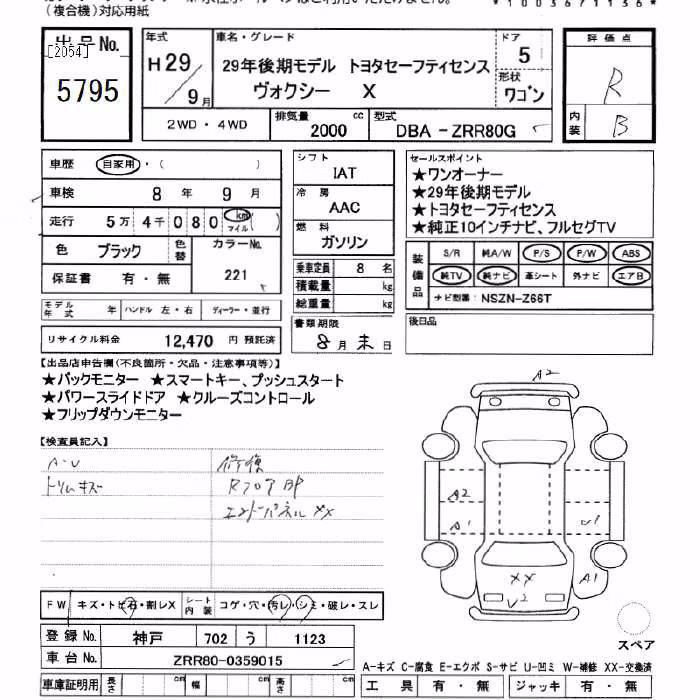 (複合機)対応用紙
*1003671136*
出品No.
[2054]
5795
年式
H29/9月
車名・グレード
29年後期モデル トヨタセーフティセンス
ヴォクシー X
ドア
5
形状
ワゴン
評価点
R
内装
B
2WD・4WD
排気量
2000 cc
型式
DBA-ZRR80G
車歴 自家用・( )
車検 8年 9月
走行 5万4千080 km マイル( )
色 ブラック 色替 カラーNo.
保証書 有・無 221
モデル年式 年 ハンドル 左・右 ディーラー・並行
リサイクル料金 12,470 円 預託済
シフト
IAT
冷房
AAC
燃料
ガソリン
乗車定員 8 名
積載量 kg
総重量 kg
書類期限
8月末日
セールスポイント
★ワンオーナー
★29年後期モデル
★トヨタセーフティセンス
★純正10インチナビ、フルセグTV
装備品
S/R 純A/W P/S P/W ABS
純TV 純ナビ 革シート 外ナビ エアB
ナビ型番: NSZN-Z66T
後日品
【出品店申告欄(不良箇所・欠品・注意事項等)】
★バックモニター ★スマートキー、プッシュスタート
★パワースライドドア ★クルーズコントロール
★フリップダウンモニター
【検査員記入】
A・U
トリムキズ
修復
RフロアBP
エンドパネルXX
A2
A2
A1
U1
A1
XX
U2
スペア
FW キズ・トビ石・割レX シート内装 コゲ・穴・汚レ・シミ・破レ・スレ
登録No. 神戸 702 う 1123
車台No. ZRR80-0359015
車庫証明用 長さ cm 幅 cm 高さ cm
A-キズ C-腐食 E-エクボ S-サビ U-凹ミ W-補修 XX-交換済
工具 有・無 ジャッキ 有・無